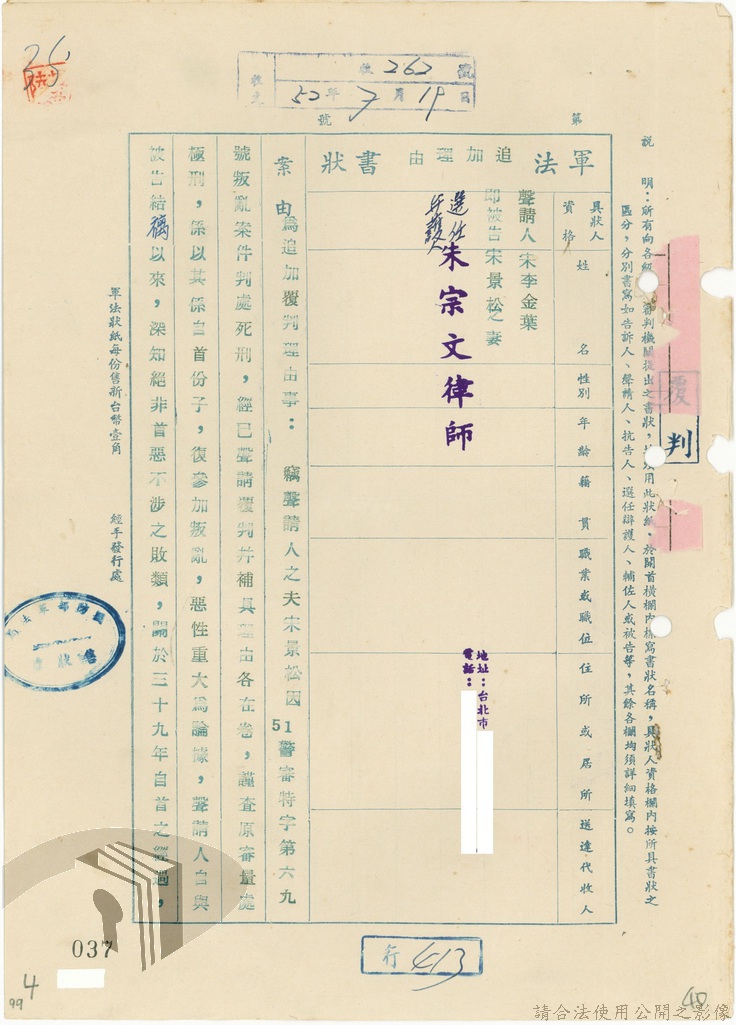 收 262 號
收文 52年7月19日
第 號
軍法 追加理由 書狀
說明:所有向各級軍事審判機關提出之書狀,均須用此狀紙,於開首橫欄內標寫書狀名稱,具狀人資格欄內按所具書狀之
區分,分別書寫如告訴人、聲請人、抗告人、選任辯護人、輔佐人或被告等,其餘各欄均須詳細填寫。
覆判
具狀人資格 姓名 性別 年齡 籍貫 職業或職位 住所或居所 送達代收人
聲請人宋李金葉
即被告宋景松之妻
選任辯護人 朱宗文律師
地址:台北市
電話:
案由 為追加覆判理由事: 竊聲請人之夫宋景松因51警審特字第六九
號叛亂案件判處死刑,經已聲請覆判并補具理由各在卷,謹查原審量處
極刑,係以其係自首份子,復參加叛亂,惡性重大為論據,聲請人自與
被告結褵以來,深知絕非首惡不涉之敗類,關於三十九年自首之經過,
軍法狀紙每份售新台幣壹角 經手發行處
行 413
037
4
99
40
請合法使用公開之影像